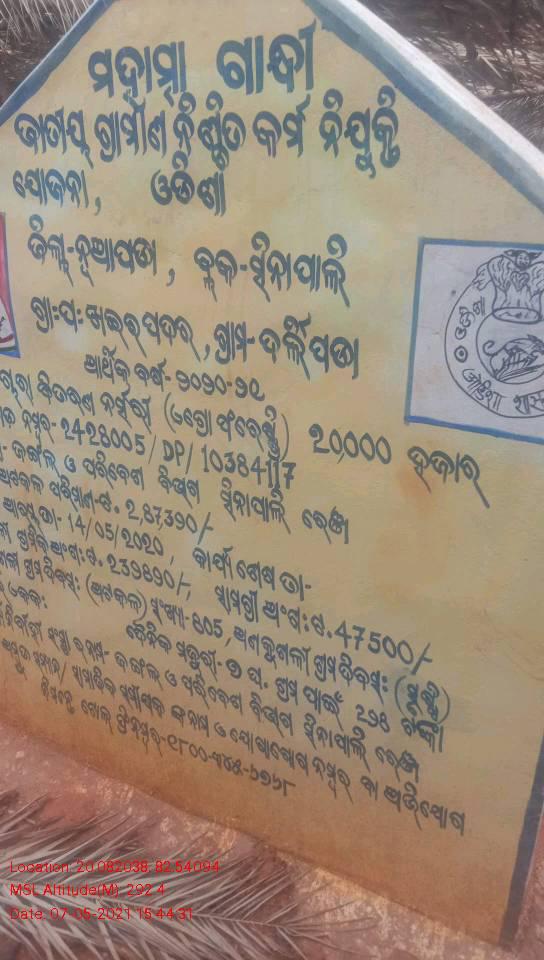 ମହାତ୍ମା ଗାନ୍ଧୀ
ଜାତୀୟ ଗ୍ରାମୀଣ ନିଶ୍ଚିତ କର୍ମ ନିଯୁକ୍ତି
ଯୋଜନା, ଓଡିଶା
ଜିଲ୍ଲା-ନୂଆପଡା, ବ୍ଲକ-ସିନାପାଲି
ଗ୍ରା:ପ:ଖଇରପଦର, ଗ୍ରାମ-ଦର୍ଲିପଡା
ଆର୍ଥିକ ବର୍ଷ-୨୦୨୦-୨୧
ବିତରଣ ନର୍ସରୀ (ଏଗ୍ରୋ ଫରେଷ୍ଟ୍ରି) 20,000 ହଜାର
ନମ୍ବର-2428005/DP/10384117
ଜଙ୍ଗଲ ଓ ପରିବେଶ ବିଭାଗ ସିନାପାଲି ରେଞ୍ଜ
ଅଟକଳ ପରିମାଣ-ଟ. 2,87,390/-
ଆରମ୍ଭ ତା-14/05/2020, କାର୍ଯ୍ୟ ଶେଷ ତା-
ଶ୍ରମିକ ଅଂଶ:ଟ. 239890/-, ସାମଗ୍ରୀ ଅଂଶ:ଟ.47500/-
ଶ୍ରମଦିବସ: (ଅଟକଳ) ସଂଖ୍ୟା-805, ଅଣକୁଶଳୀ ଶ୍ରମଦିବସ: (ସୃଷ୍ଟି)
ଦୈନିକ ମଜୁରୀ-୭ ଘ. ଶ୍ରମ ପାଇଁ ୨୨୪ ଟଙ୍କା
ସଂସ୍ଥା ର ନାମ-ଜଙ୍ଗଲ ଓ ପରିବେଶ ବିଭାଗ ସିନାପାଲି ରେଞ୍ଜ
ନାମ ଓ ଯୋଗାଯୋଗ ନମ୍ବର ବା ଅଭିଯୋଗ
ନିମନ୍ତେ ଟୋଲ୍ ଫ୍ରି ନମ୍ବର-୧୮୦୦-୩୪୫-୬୭୬୮
ଓଡିଶା ଶାସନ
Location: 20.082038, 82.54094
MSL Altitude(M): 292.4
Date: 07-05-2021 15:44:31